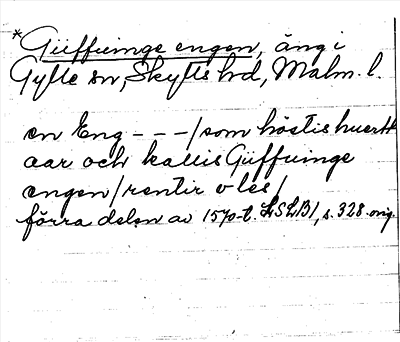 *Güffuinge engen, äng i
Gylle sn, Skytts hd, Malm. l.
en Eng - - - / som höstis huertt
aar och kallis Güffuinge
engen / rentir v les /
förra delen av 1570-t. LSLB1, s. 328. orig.